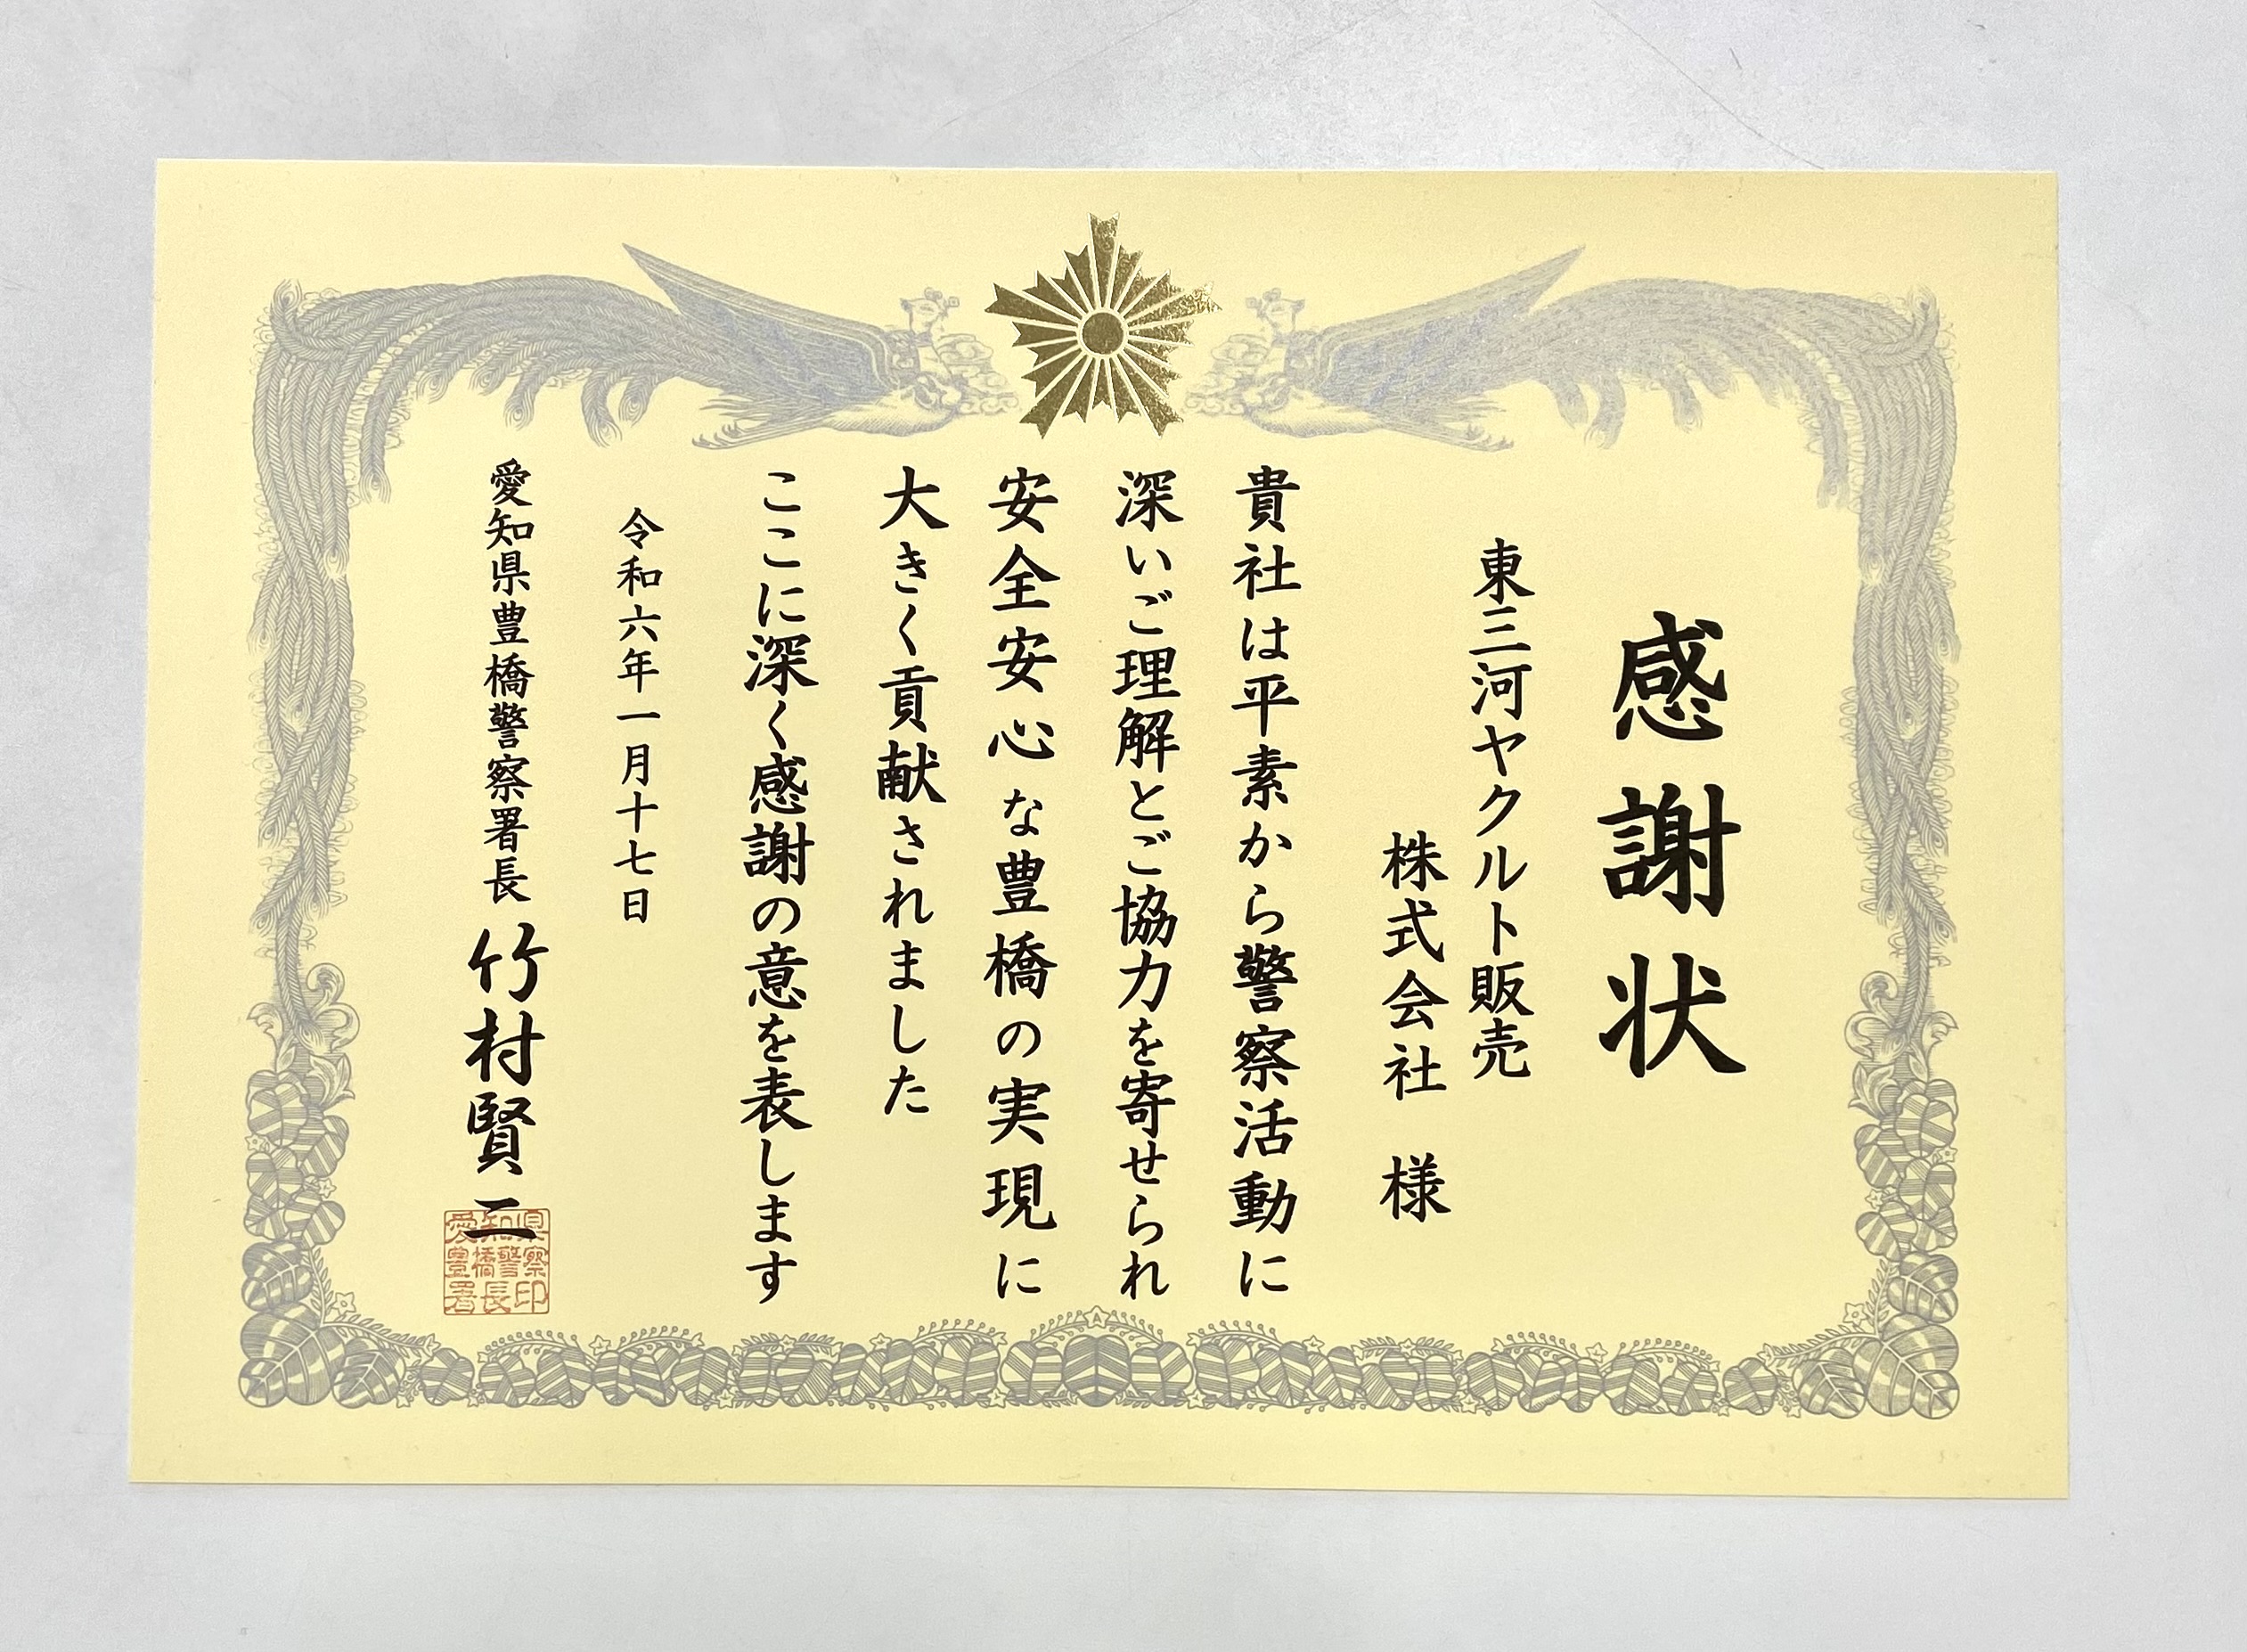 感謝状
東三河ヤクルト販売
株式会社 様
貴社は平素から警察活動に
深いご理解とご協力を寄せられ
安全安心な豊橋の実現に
大きく貢献されました
ここに深く感謝の意を表します
令和六年一月十七日
愛知県豊橋警察署長 竹村賢二
愛知県
豊橋警察
署長印